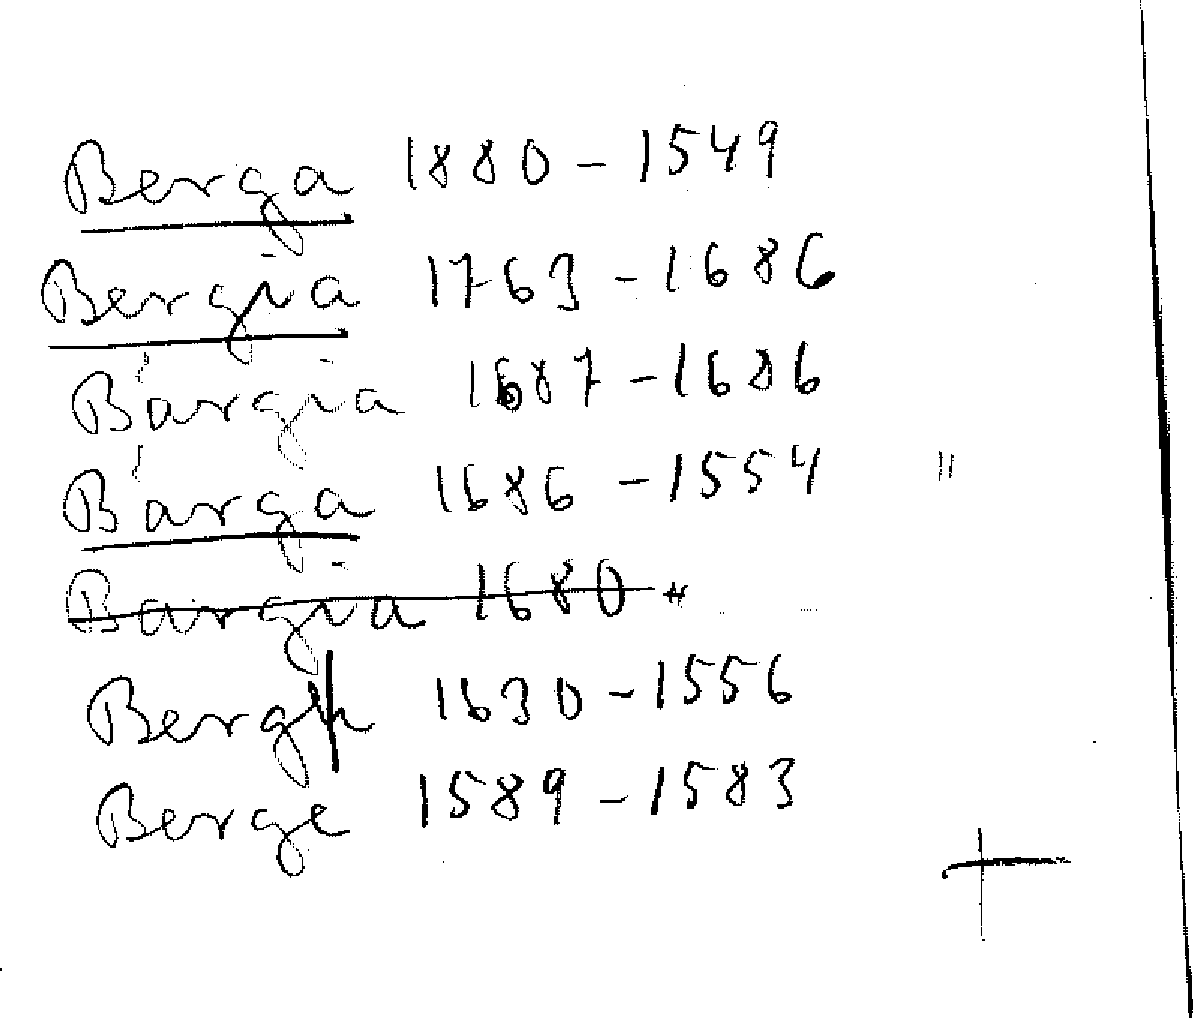 Berga 1880 – 1549
Bergia 1763 – 1686
Bargia 1687 – 1686
Barga 1686 – 1554 "
Bargia 1680 "
Bergh 1630 – 1556
Berge 1589 – 1583